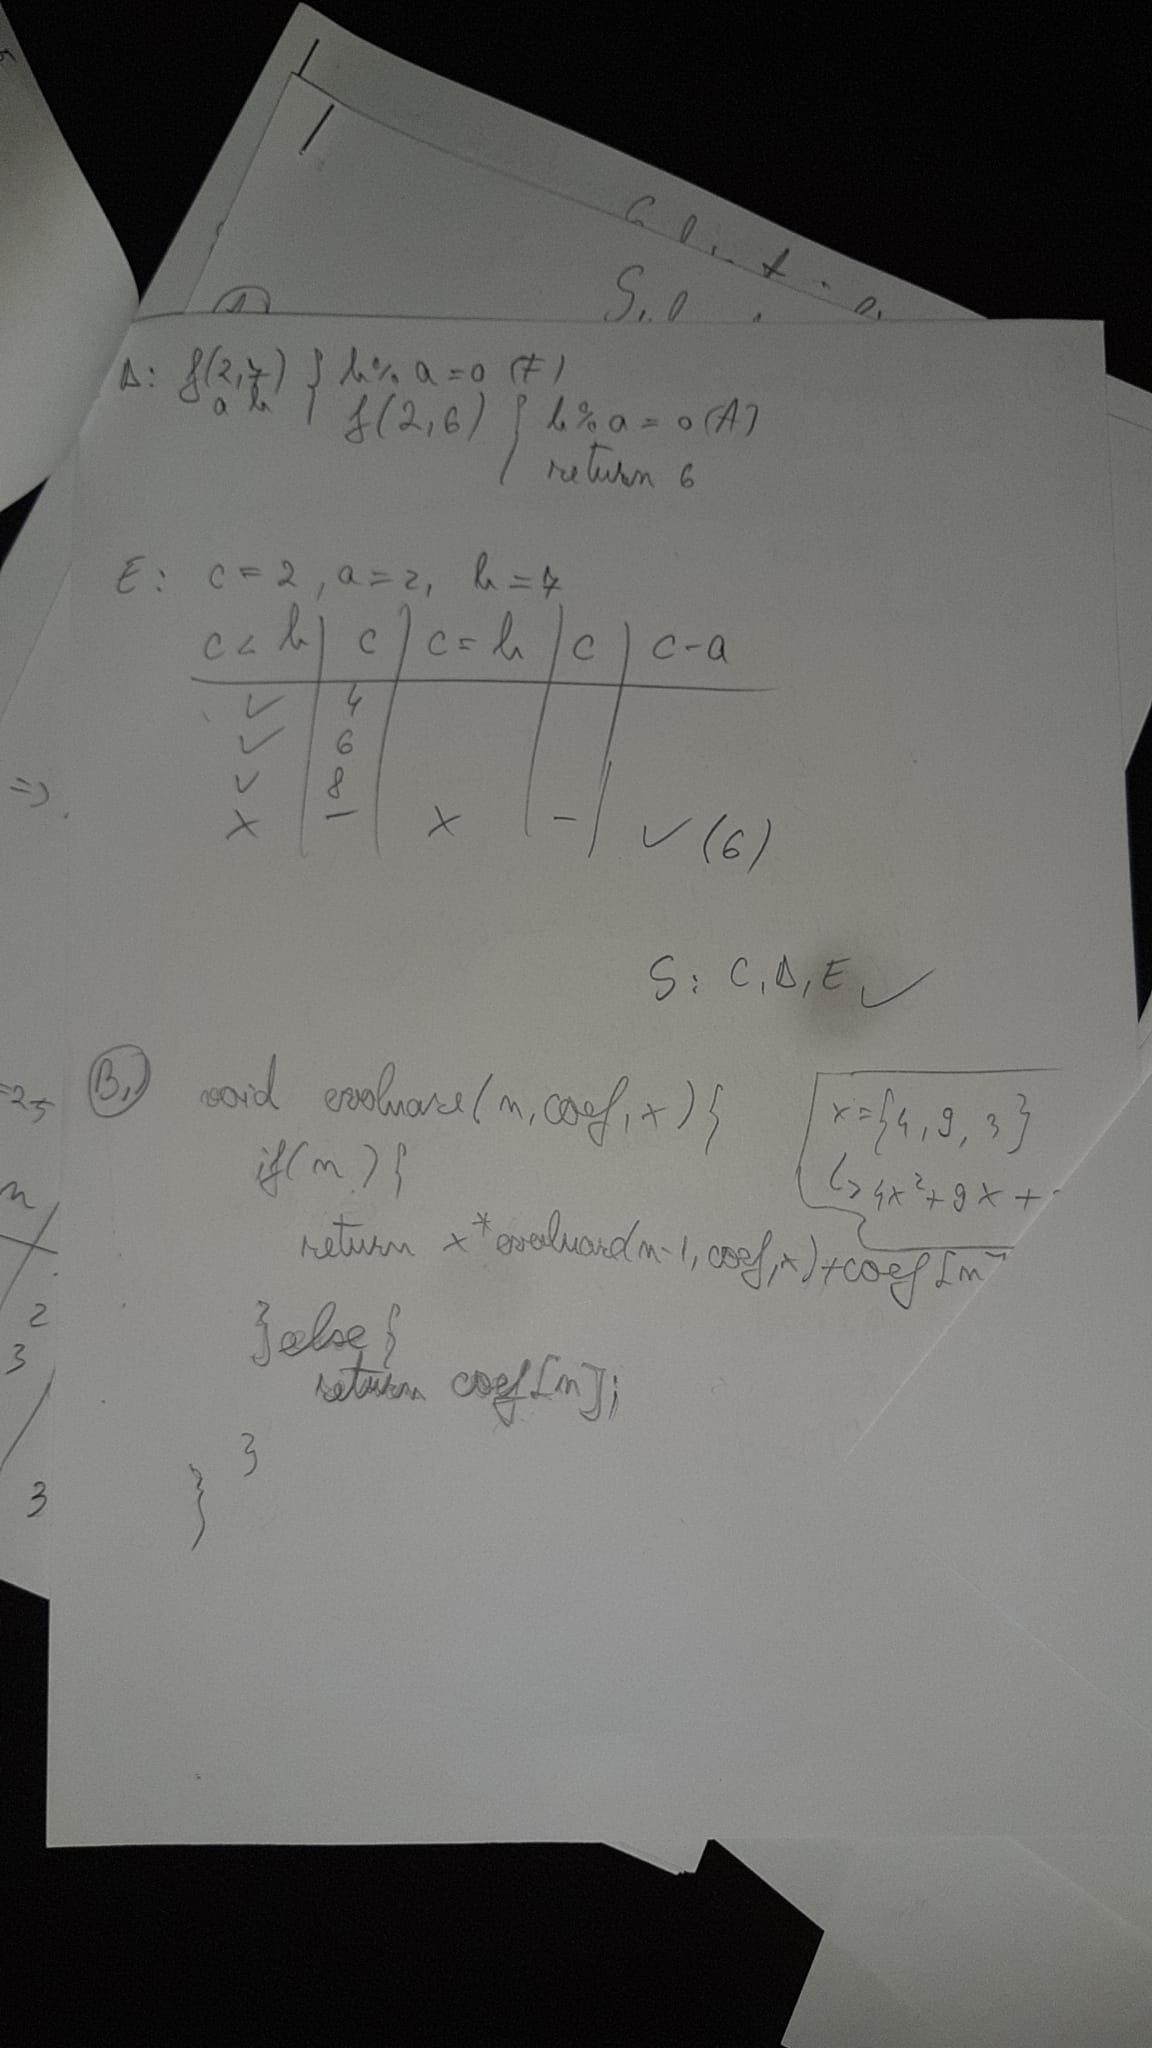 D: f(2,7) } b%a=0 (F)
a b
f(2,6) } b%a=0 (A)
return 6
E: c=2, a=2, b=7
c<b | c | c=b | c | c-a
✓ 4
✓ 6
✓ 8
x – x – ✓ (6)
=>.
S: C, D, E ✓
B.) void evaluare(n, coef, x){
x={4,9,3}
↳ 4x²+9x+
=25
if(n){
return x*evaluare(n-1, coef, x)+coef[n]
}else{
return coef[n];
}
}
n
2
3
3